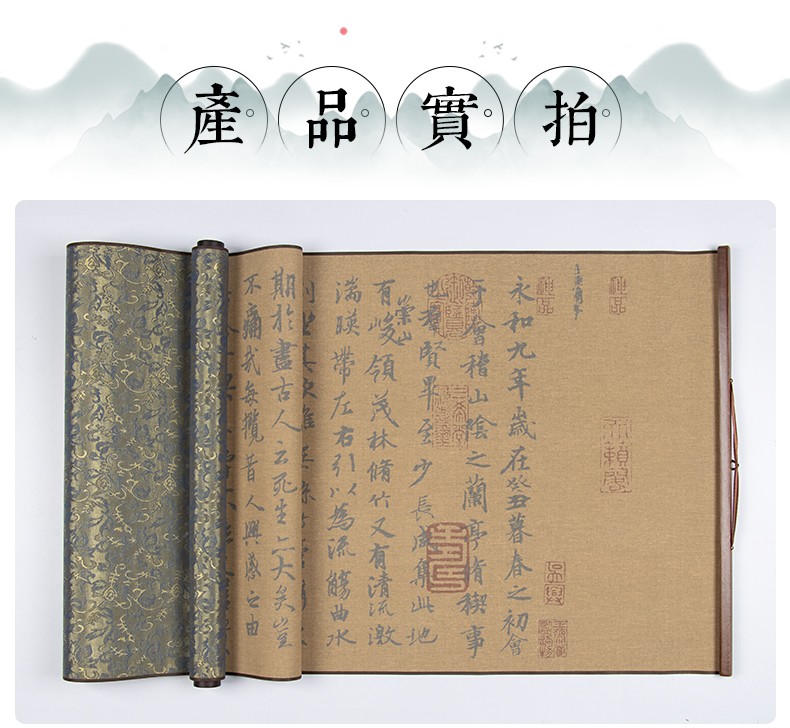 產品實拍
神品
神品
永和九年歲在癸丑暮春之初會
于會稽山陰之蘭亭脩禊事
也羣賢畢至少長咸集此地
有崇山峻領茂林脩竹又有清流激
湍暎帶左右引以為流觴曲水
期於盡古人云死生亦大矣豈
不痛哉每攬昔人興感之由